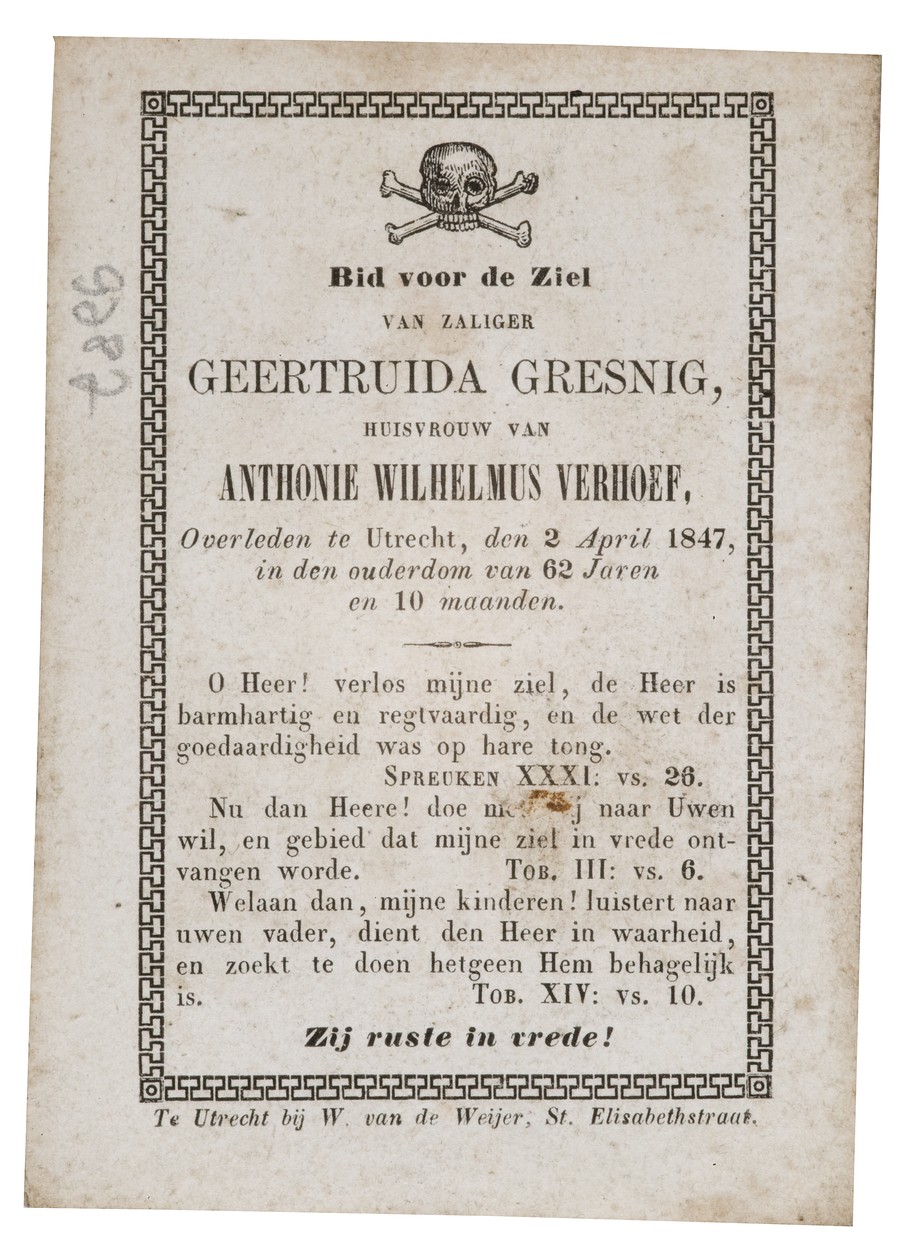 Bid voor de Ziel
VAN ZALIGER
GEERTRUIDA GRESNIG,
HUISVROUW VAN
ANTHONIE WILHELMUS VERHOEF,
Overleden te Utrecht, den 2 April 1847,
in den ouderdom van 62 Jaren
en 10 maanden.
O Heer! verlos mijne ziel, de Heer is
barmhartig en regtvaardig, en de wet der
goedaardigheid was op hare tong.
SPREUKEN XXXI: vs. 26.
Nu dan Heere! doe naar Uwen
wil, en gebied dat mijne ziel in vrede ont-
vangen worde. TOB. III: vs. 6.
Welaan dan, mijne kinderen! luistert naar
uwen vader, dient den Heer in waarheid,
en zoekt te doen hetgeen Hem behagelijk
is. TOB. XIV: vs. 10.
Zij ruste in vrede!
Te Utrecht bij W. van de Weijer, St. Elisabethstraat.